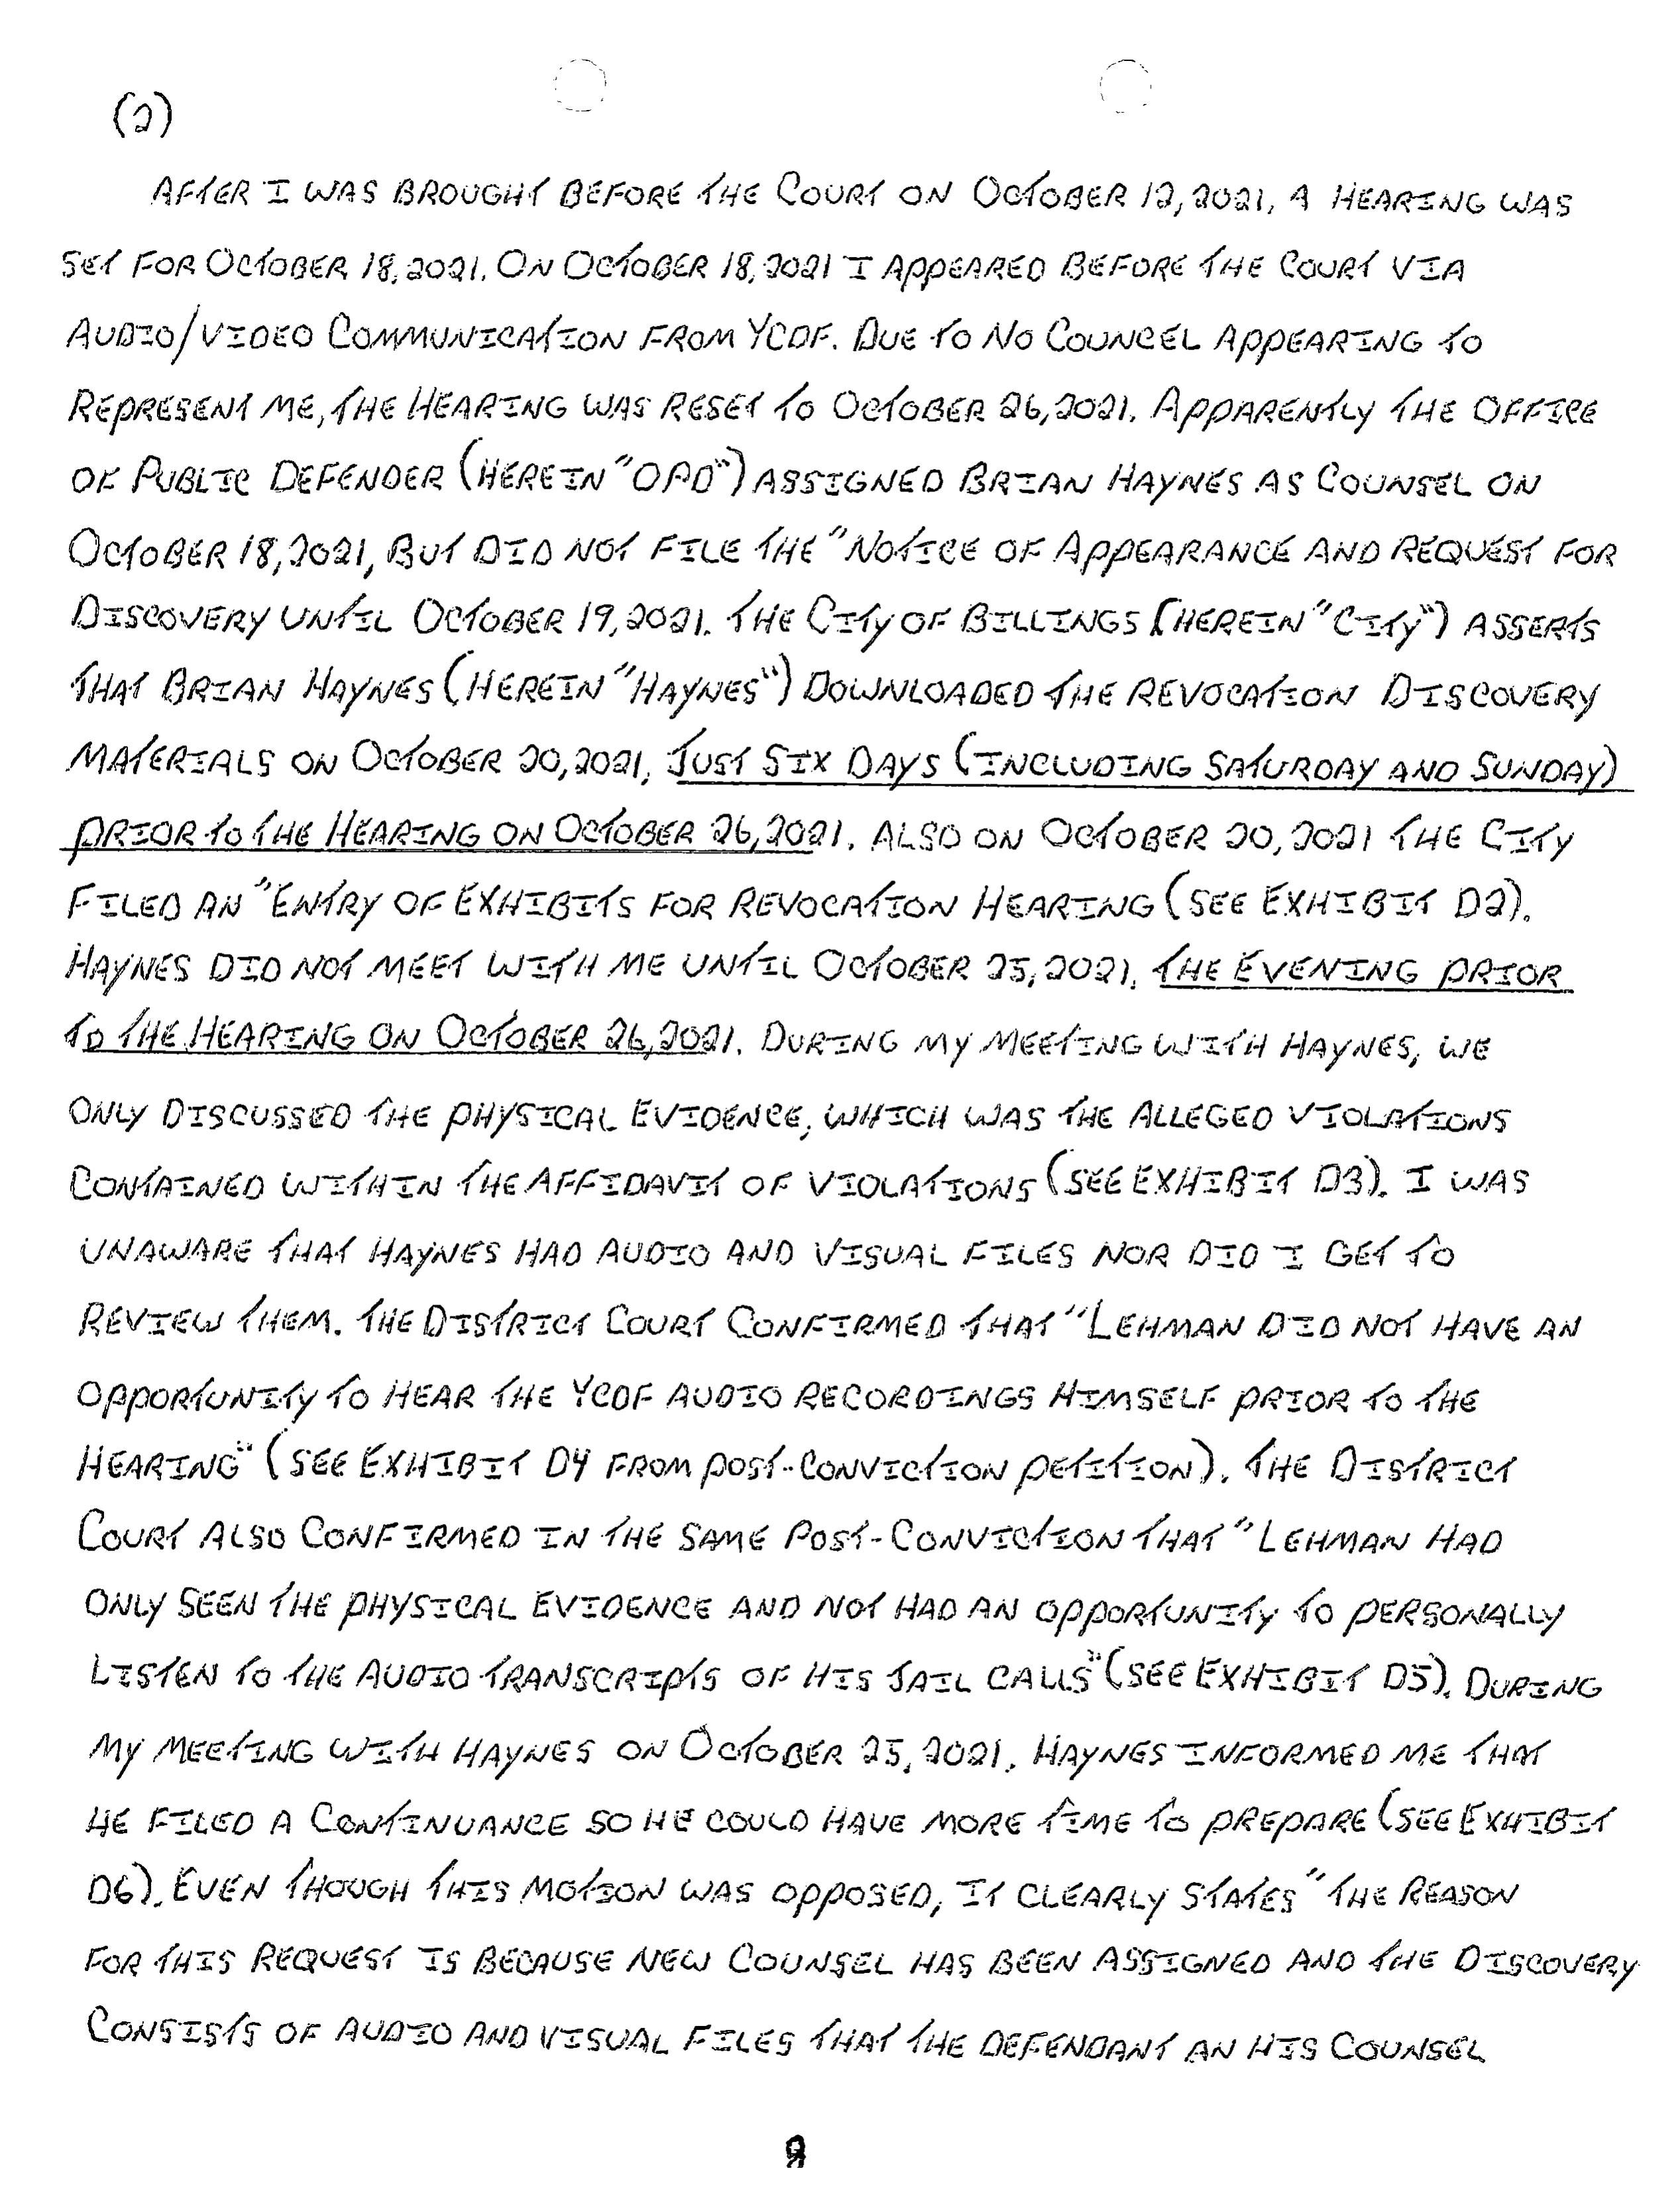 (2)
AFTER I WAS BROUGHT BEFORE THE COURT ON OCTOBER 12, 2021, A HEARING WAS
SET FOR OCTOBER 18, 2021. ON OCTOBER 18, 2021 I APPEARED BEFORE THE COURT VIA
AUDIO/VIDEO COMMUNICATION FROM YCDF. DUE TO NO COUNCEL APPEARING TO
REPRESENT ME, THE HEARING WAS RESET TO OCTOBER 26, 2021. APPARENTLY THE OFFICE
OF PUBLIC DEFENDER (HEREIN "OPD") ASSIGNED BRIAN HAYNES AS COUNSEL ON
OCTOBER 18, 2021, BUT DID NOT FILE THE "NOTICE OF APPEARANCE AND REQUEST FOR
DISCOVERY UNTIL OCTOBER 19, 2021. THE CITY OF BILLINGS (HEREIN "CITY") ASSERTS
THAT BRIAN HAYNES (HEREIN "HAYNES") DOWNLOADED THE REVOCATION DISCOVERY
MATERIALS ON OCTOBER 20, 2021, JUST SIX DAYS (INCLUDING SATURDAY AND SUNDAY)
PRIOR TO THE HEARING ON OCTOBER 26, 2021. ALSO ON OCTOBER 20, 2021 THE CITY
FILED AN "ENTRY OF EXHIBITS FOR REVOCATION HEARING (SEE EXHIBIT D2).
HAYNES DID NOT MEET WITH ME UNTIL OCTOBER 25, 2021, THE EVENING PRIOR
TO THE HEARING ON OCTOBER 26, 2021. DURING MY MEETING WITH HAYNES, WE
ONLY DISCUSSED THE PHYSICAL EVIDENCE, WHICH WAS THE ALLEGED VIOLATIONS
CONTAINED WITHIN THE AFFIDAVIT OF VIOLATIONS (SEE EXHIBIT D3). I WAS
UNAWARE THAT HAYNES HAD AUDIO AND VISUAL FILES NOR DID I GET TO
REVIEW THEM. THE DISTRICT COURT CONFIRMED THAT "LEHMAN DID NOT HAVE AN
OPPORTUNITY TO HEAR THE YCDF AUDIO RECORDINGS HIMSELF PRIOR TO THE
HEARING" (SEE EXHIBIT D4 FROM POST-CONVICTION PETITION). THE DISTRICT
COURT ALSO CONFIRMED IN THE SAME POST-CONVICTION THAT "LEHMAN HAD
ONLY SEEN THE PHYSICAL EVIDENCE AND NOT HAD AN OPPORTUNITY TO PERSONALLY
LISTEN TO THE AUDIO TRANSCRIPTS OF HIS JAIL CALLS" (SEE EXHIBIT D5). DURING
MY MEETING WITH HAYNES ON OCTOBER 25, 2021. HAYNES INFORMED ME THAT
HE FILED A CONTINUANCE SO HE COULD HAVE MORE TIME TO PREPARE (SEE EXHIBIT
D6). EVEN THOUGH THIS MOTION WAS OPPOSED, IT CLEARLY STATES "THE REASON
FOR THIS REQUEST IS BECAUSE NEW COUNSEL HAS BEEN ASSIGNED AND THE DISCOVERY
CONSISTS OF AUDIO AND VISUAL FILES THAT THE DEFENDANT AN HIS COUNSEL